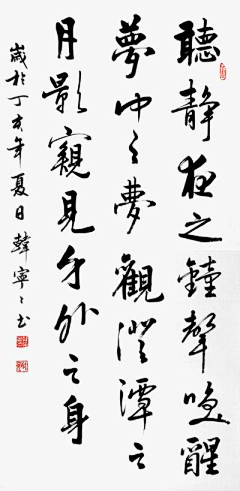 聽静夜之鐘聲唤醒
夢中之夢觀澄潭之
月影窺見身外之身
歲於丁亥年夏日韓寧〻书